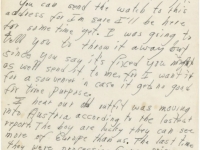 You can send the watch to this
address for I'm sure I'll be here
for some time yet. I was going to
tell you to throw it away but
since you say it's fixed you might
as well send it to me, for I want it
for a souvenir in case it gets no good
for time purposes.
I hear our old outfit was moving
into Austria according to the latest
report. The boys are lucky they can see
more of Europe than us. The last time
they were